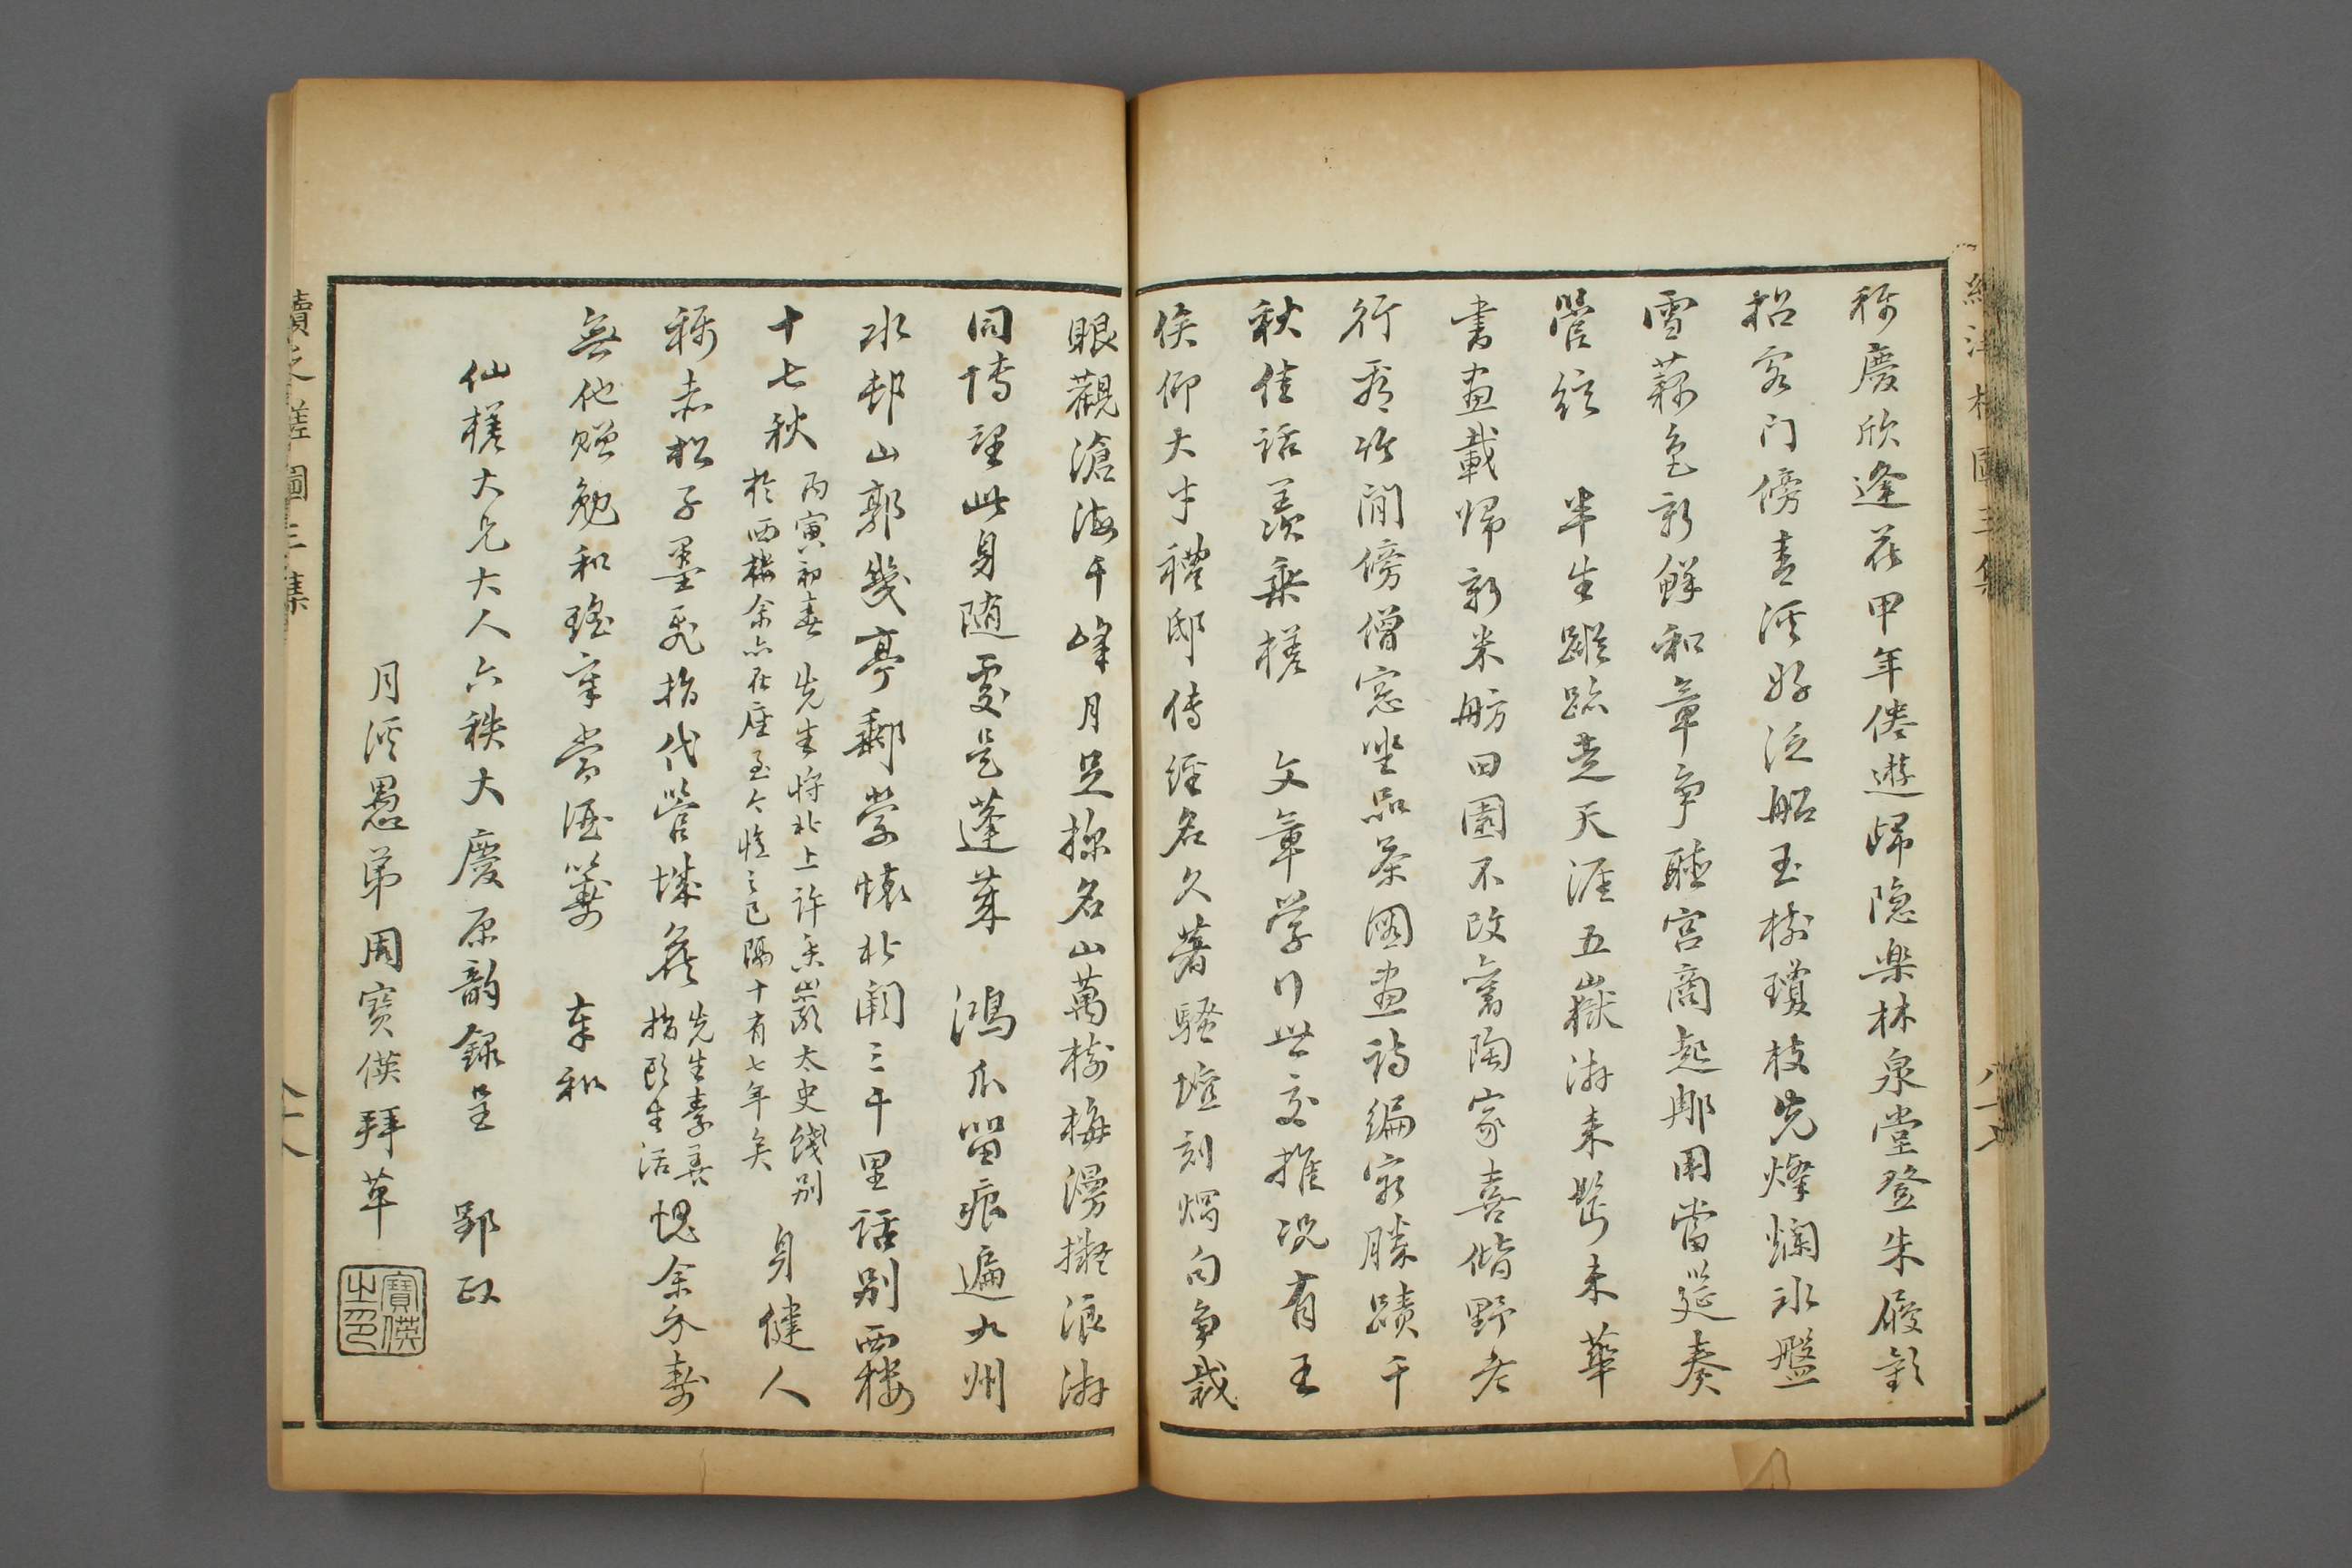 稱慶欣逢花甲年倦遊歸隱樂林泉堂登朱履欵
招客门傍青溪好泛船玉樹瓊枝光燦爛氷盤
雪藕色新鮮和章争聽宫商起那用當筵奏
管絃　半生蹤跡走天涯五嶽游来鬓未華
書畫載歸新米舫田園不改舊陶家喜偕野老
行看竹閒傍僧窓坐品茶圖畫詩編窮勝蹟千
秋佳話羡乘槎　文章學行世交推况有王
侯仰大才禮邸傳經名久著騷壇刻燭句争裁
眼觀滄海千峰月足探名山萬樹梅漫擬浪游
同博望此身随處是蓬萊　鴻爪留痕遍九州
水邨山郭幾亭郵縈懷北闕三千里話别西樓
十七秋丙寅初春　先生將北上許季巖太史餞别
於西樓余亦在座至今憶之已隔十有七年矣身健人
稱赤松子墨飛指代管城矦先生素善
指頭生活愧余介壽
無他贈勉和瑤章當酒籌　奉和
仙槎大兄大人六秩大慶原韵録呈　郢政
月溪愚弟周寶偀拜草
寶偀之印
續泛槎圖三集
續泛槎圖三集